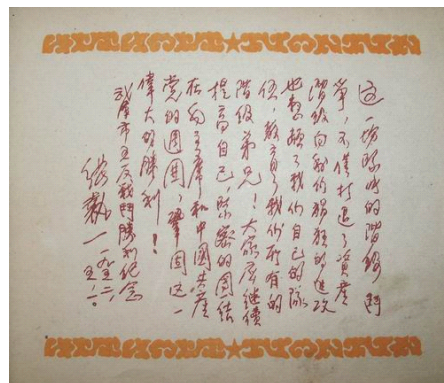 這一場的階級鬥
爭,不僅打退了資產
階級向我們猖狂的進攻
也整頓了我們自己的隊
伍,教育了我們所有的
階級弟兄!大家應繼續
提高自己,緊密的團結
在毛主席和中國共產
党的周圍,鞏固這一
偉大的勝利!
武漢市五反戰鬥勝利紀念
張執一
一九五二、